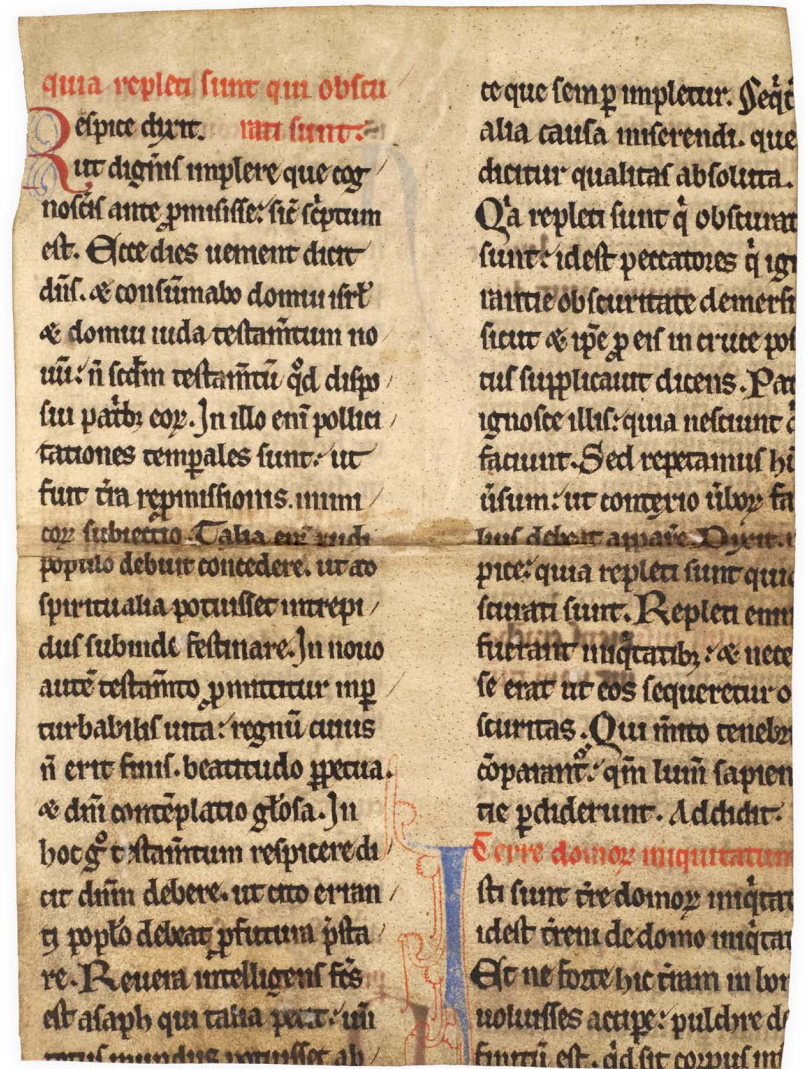 quia repleti sunt qui obscu
Respice dixit. rati sunt:
ut digneris implere que cog
noscis ante ꝓmisisse: sic̄ sc̄ptum
est. Ecce dies uenient dicit
dn̄s. ⁊ consūmabo domui isrł
⁊ domui iuda testam̄tum no
uū: n̄ scdm̄ testam̄tū qd̓ dispo
sui patribꝫ eoꝝ. In illo eni̅ pollici
tationes temꝑales sunt: ut
fuit tr̄a repmissionis. inimi
coꝝ subiectio. Talia eni̅ rudi
populo debuit concedere. ut ad
spiritualia potuisset intrepi
dus subinde festinare. In nouo
autē testam̄to ꝓmittitur inꝑ
turbabilis uita: regnū cuius
n̄ erit finis. beatitudo ꝑpetua.
⁊ dn̄i contēplatio głosa. In
hoc gͦ testam̄tum respicere di
cit dn̄m debere. ut cito erran
ti popło debeat ꝓfutura p̄sta
re. Reuera intelligens fc̄s
est asaph qui talia petit: un̄
totus mundus potuisset ab
te que semꝑ impletur. Seqͥt
alia causa miserendi. que
dicitur qualitas absoluta.
Qͥa repleti sunt qͥ obscurat
sunt: idest peccatores qͥ ign
rantie obscuritate demersi
sicut ⁊ ip̄e ꝓ eis in cruce pos
tus supplicauit dicens. Pat
ignosce illis: quia nesciunt
faciunt. Sed repetamus
ūsum: ut contextio ūboꝝ fa
lius debeat apparē. Dixit.
pice: quia repleti sunt qui
scurati sunt. Repleti enim
fuerant iniqͥtatibꝫ: ⁊ nece
se erat ut eos sequeretur o
scuritas. Qui m̄ito tenebr
cōparant: qm̄ lum̄ sapien
tie ꝑdiderunt. Addidit.
Terre domoꝝ iniquitatum
Isti sunt tr̄e domoꝝ iniqͥtat
idest tr̄eni de domo iniqͥtat
Et ne forte hic tr̄am in bon
uoluisses accipe: pulchre de
finitū est. qd̓ sit corpus